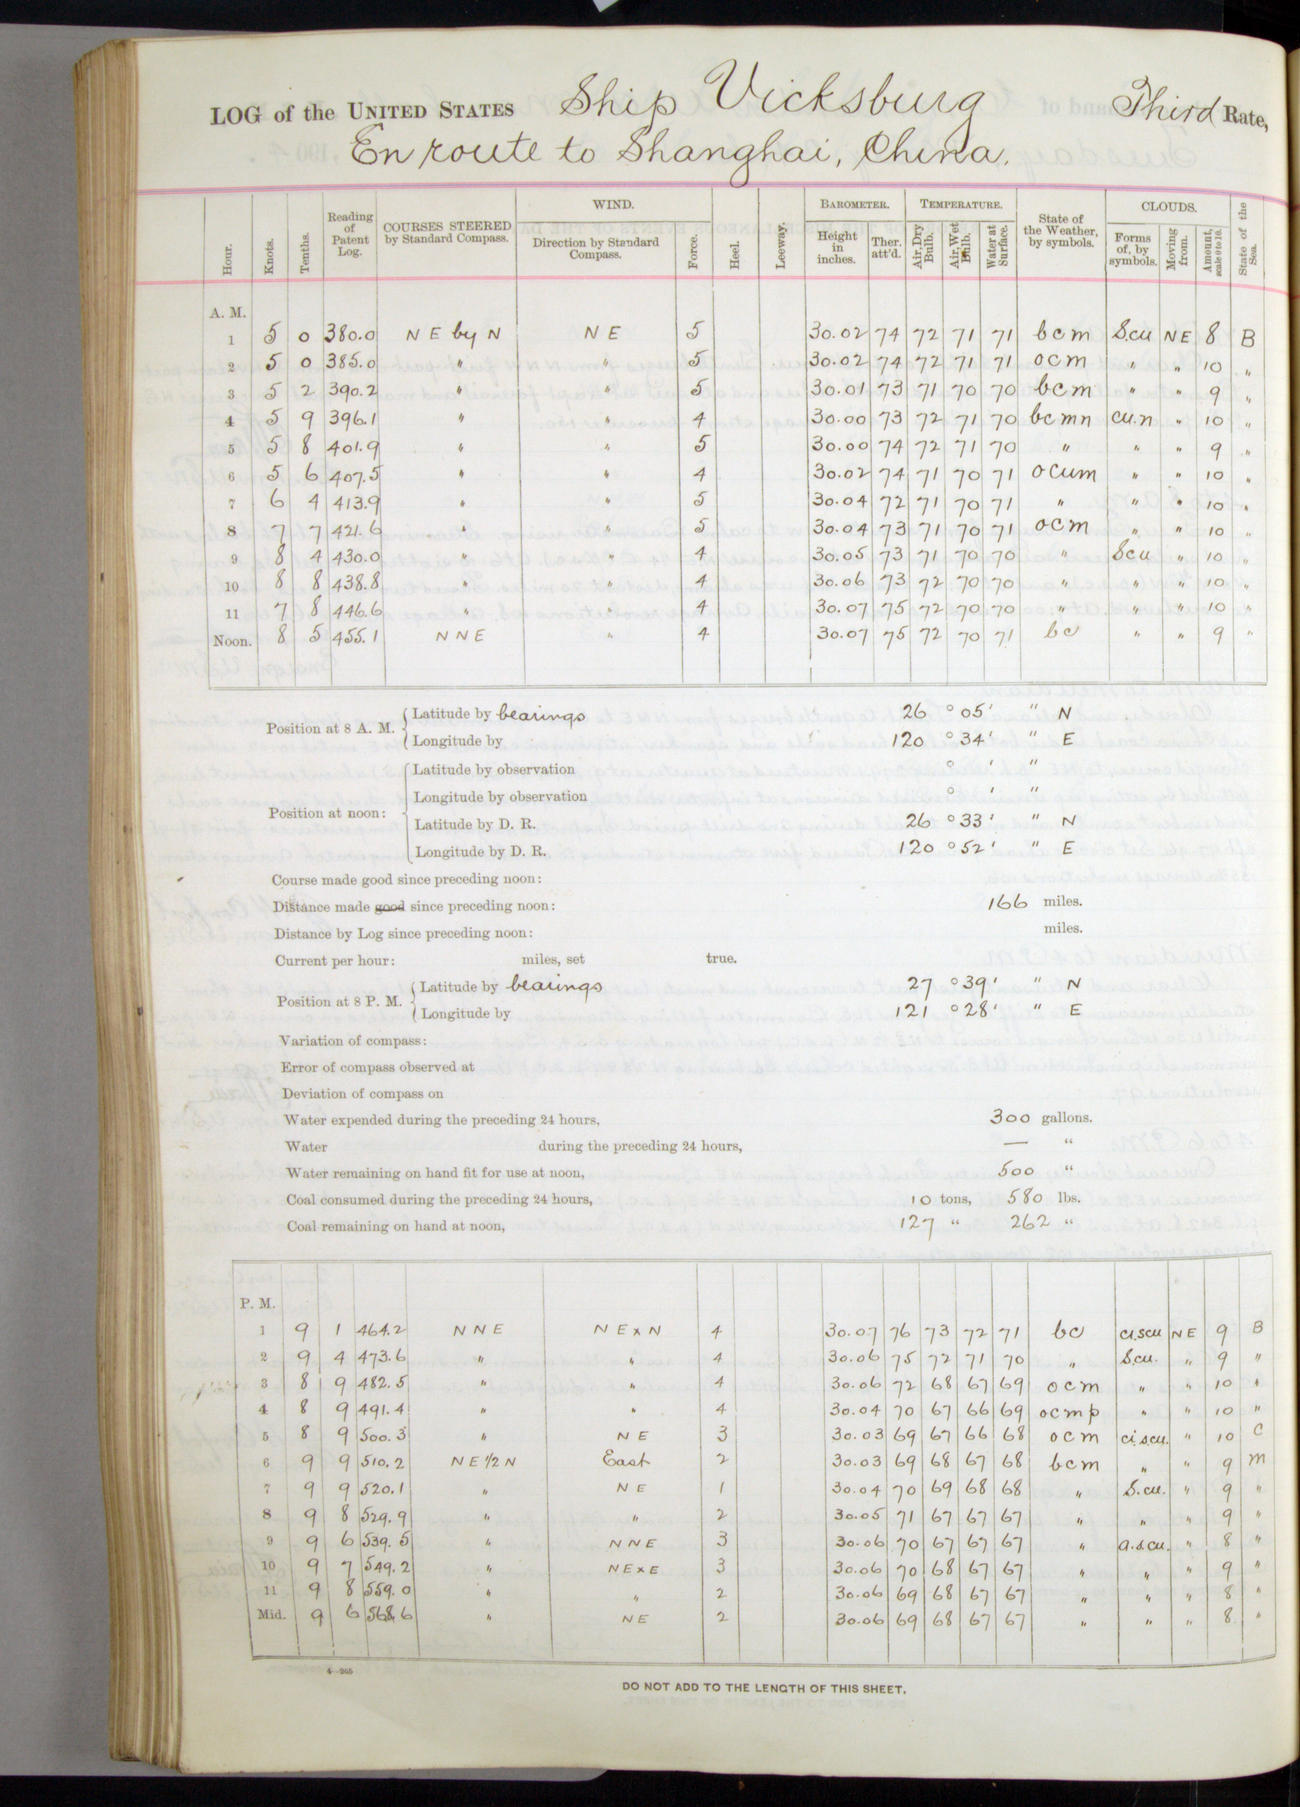 LOG of the UNITED STATES Ship Vicksburg Third Rate,
En route to Shanghai, China.
Hour. Knots. Tenths. Reading of Patent Log. COURSES STEERED by Standard Compass. WIND. Direction by Standard Compass. Force. Heel. Leeway. BAROMETER. Height in inches. Ther. att'd. TEMPERATURE. Air, Dry Bulb. Air, Wet Bulb. Water at Surface. State of the Weather, by symbols. CLOUDS. Forms of, by symbols. Moving from. Amount, scale 0 to 10. State of the Sea.
A. M.
1 5 0 380.0 NE by N NE 5 30.02 74 72 71 71 bcm S.cu NE 8 B
2 5 0 385.0 " " 5 30.02 74 72 71 71 ocm " " 10 "
3 5 2 390.2 " " 5 30.01 73 71 70 70 bcm " " 9 "
4 5 9 396.1 " " 4 30.00 73 72 71 70 bcmn cu.n " 10 "
5 5 8 401.9 " " 5 30.00 74 72 71 70 " " " 9 "
6 5 6 407.5 " " 4 30.02 74 71 70 71 ocum " " 10 "
7 6 4 413.9 " " 5 30.04 72 71 70 71 " " " 10 "
8 7 7 421.6 " " 5 30.04 73 71 70 71 ocm " " 10 "
9 8 4 430.0 " " 4 30.05 73 71 70 70 " S.cu " 10 "
10 8 8 438.8 " " 4 30.06 73 72 70 70 " " " 10 "
11 7 8 446.6 " " 4 30.07 75 72 70 70 " " " 10 "
Noon. 8 5 455.1 NNE " 4 30.07 75 72 70 71 bc " " 9 "
Position at 8 A. M. Latitude by bearings 26 ° 05 ' " N
Longitude by 120 ° 34 ' " E
Position at noon: Latitude by observation ° ' "
Longitude by observation ° ' "
Latitude by D. R. 26 ° 33 ' " N
Longitude by D. R. 120 ° 52 ' " E
Course made good since preceding noon:
Distance made good since preceding noon: 166 miles.
Distance by Log since preceding noon: miles.
Current per hour: miles, set true.
Position at 8 P. M. Latitude by bearings 27 ° 39 ' " N
Longitude by 121 ° 28 ' " E
Variation of compass:
Error of compass observed at
Deviation of compass on
Water expended during the preceding 24 hours, 300 gallons.
Water during the preceding 24 hours, — "
Water remaining on hand fit for use at noon, 500 "
Coal consumed during the preceding 24 hours, 10 tons, 580 lbs.
Coal remaining on hand at noon, 127 " 262 "
P. M.
1 9 1 464.2 NNE NExN 4 30.07 76 73 72 71 bc ci.scu NE 9 B
2 9 4 473.6 " " 4 30.06 75 72 71 70 " S.cu. " 9 "
3 8 9 482.5 " " 4 30.06 72 68 67 69 ocm " " 10 "
4 8 9 491.4 " " 4 30.04 70 67 66 69 ocmp " " 10 "
5 8 9 500.3 " NE 3 30.03 69 67 66 68 ocm ci.scu. " 10 C
6 9 9 510.2 NE 1/2 N East 2 30.03 69 68 67 68 bcm " " 9 m
7 9 9 520.1 " NE 1 30.04 70 69 68 68 " S.cu. " 9 "
8 9 8 529.9 " " 2 30.05 71 67 67 67 " " " 9 "
9 9 6 539.5 " NNE 3 30.06 70 67 67 67 " a.s.cu. " 8 "
10 9 7 549.2 " NExE 3 30.06 70 68 67 67 " " " 9 "
11 9 8 559.0 " " 2 30.06 69 68 67 67 " " " 8 "
Mid. 9 6 568.6 " NE 2 30.06 69 68 67 67 " " " 8 "
4—265
DO NOT ADD TO THE LENGTH OF THIS SHEET.